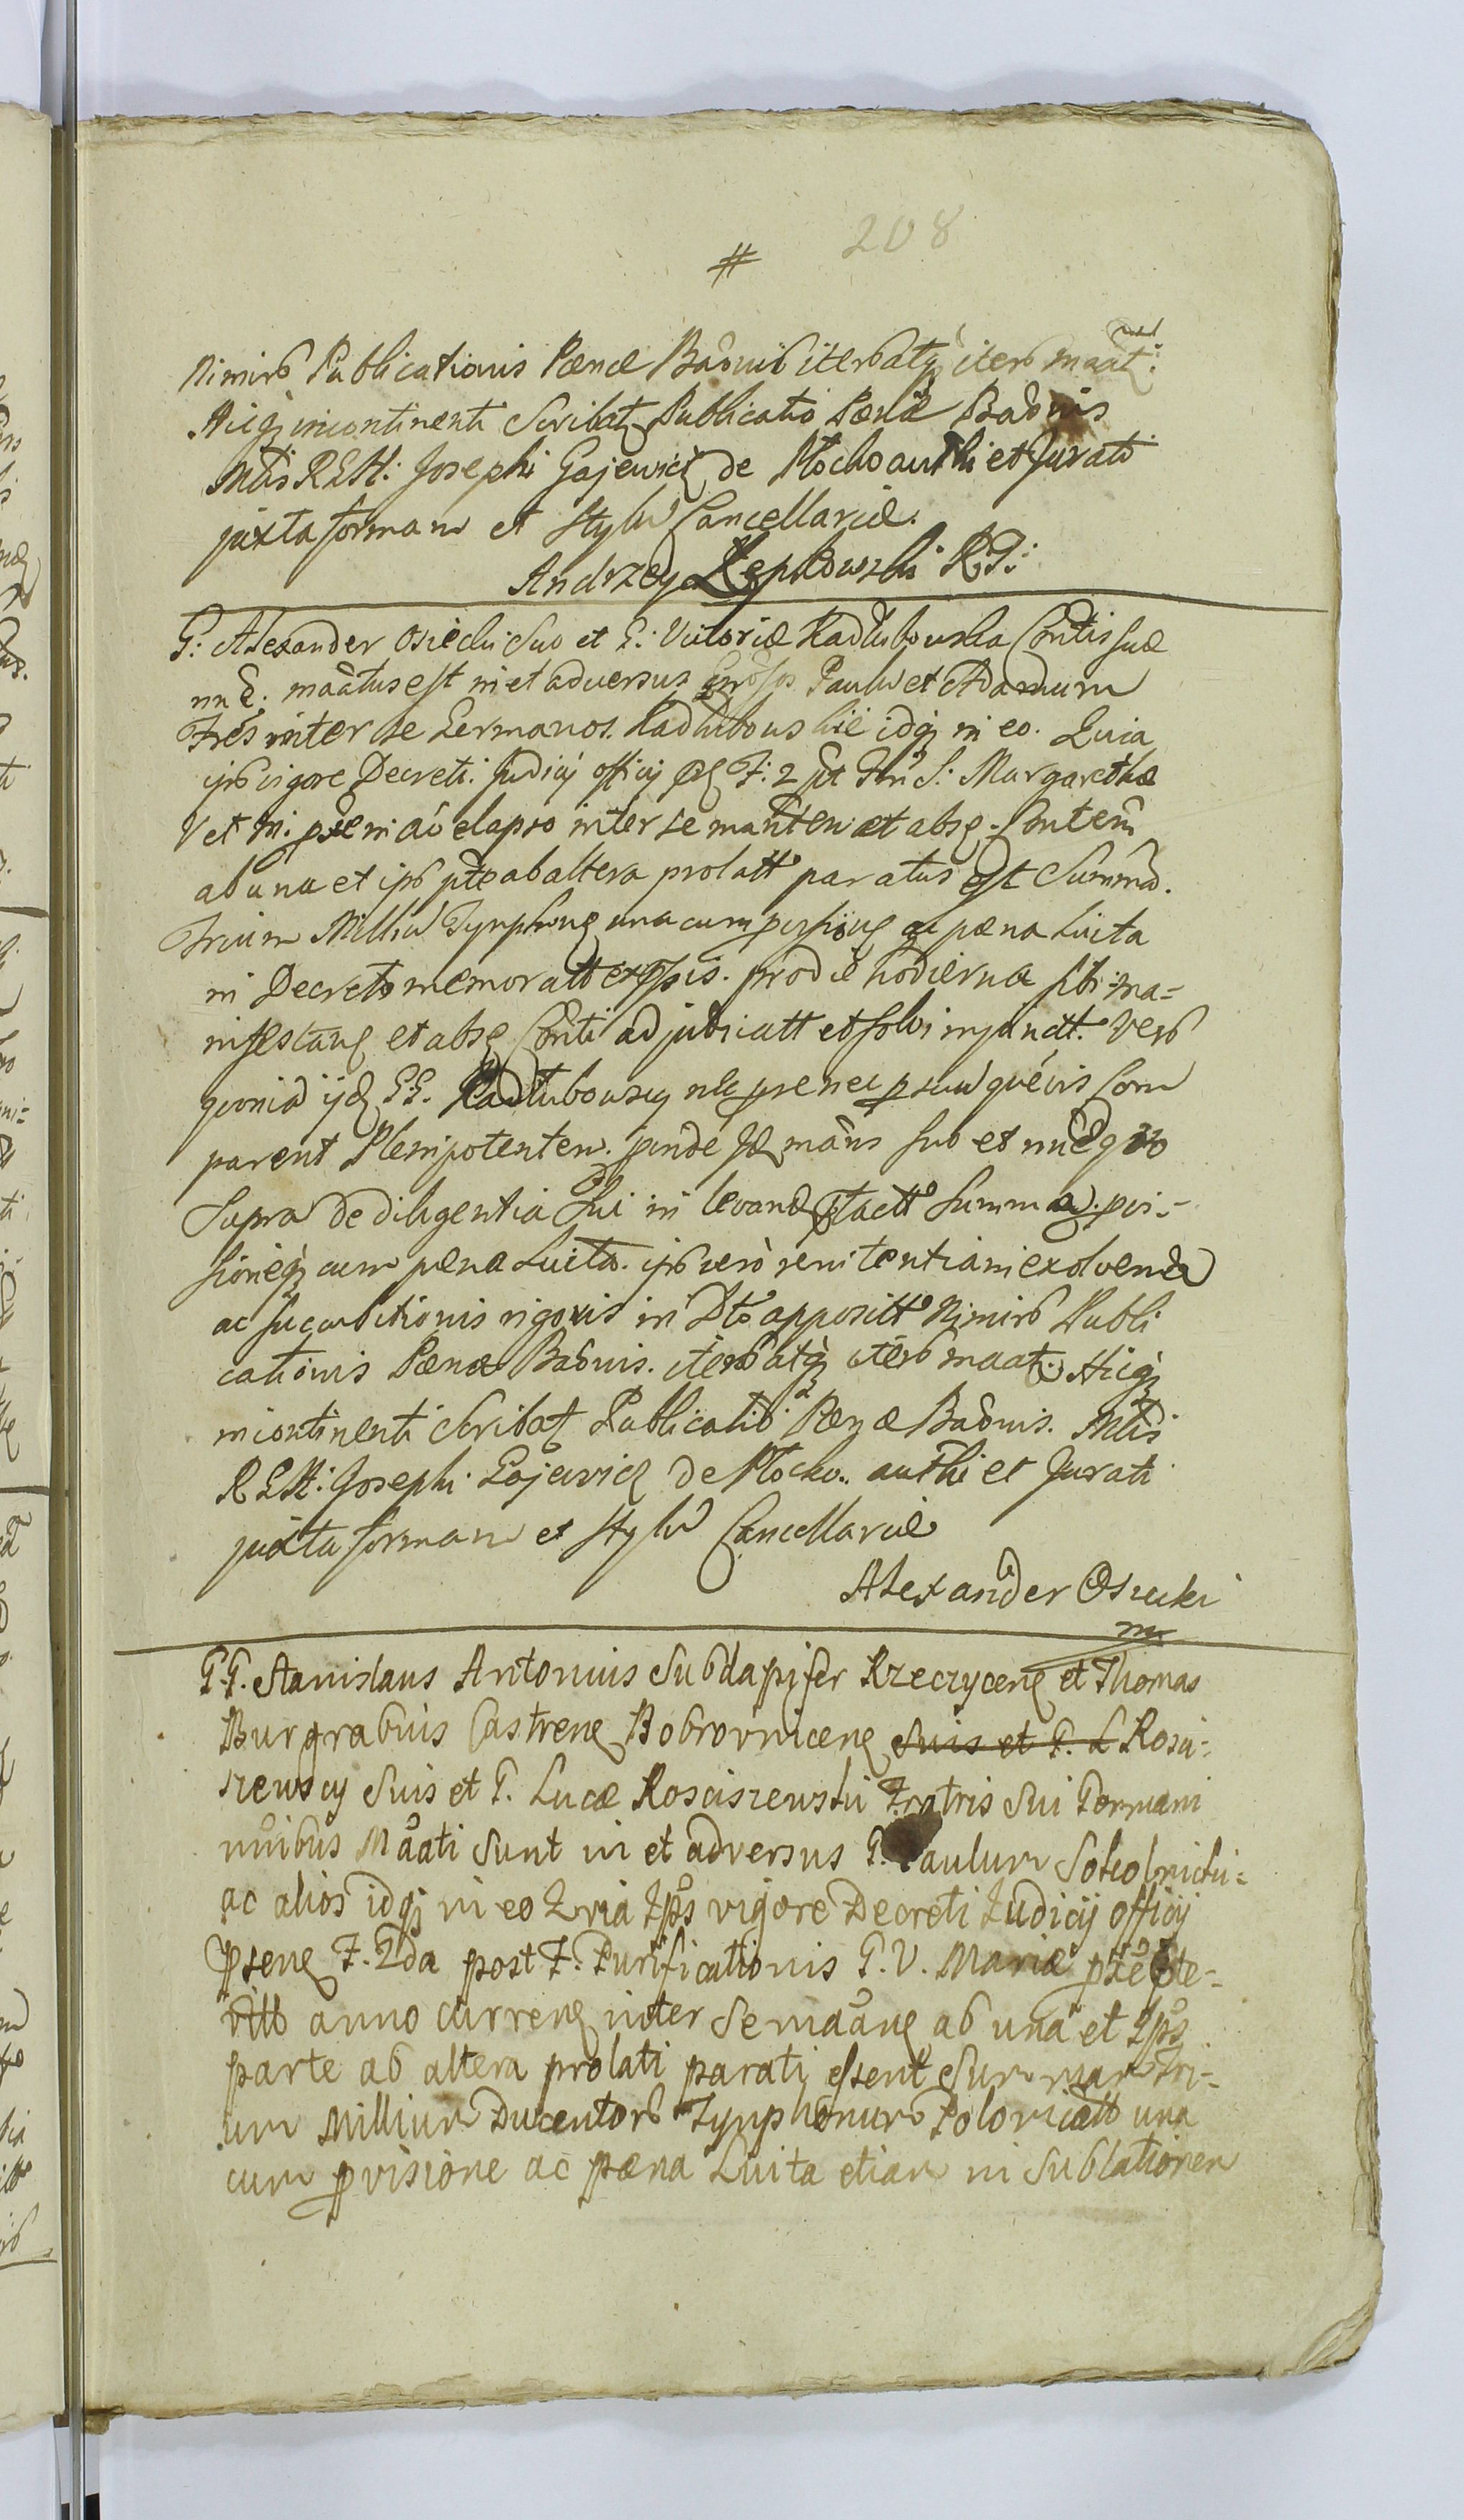 208
#
Nimirũ Publicationis Pœnæ Bañuis iterũ atq́ iterũ maãt:
Hicq incontinenti Scribat Publicatio Pœnæ Bañuis
Mtris REM: Josephi Gajewicz de Płocko authi et Jurati
juxta formam et Stylũ Cancellariæ.
Andrzey Łępkowski RP:
G: Alexander Osiecki Suo et G: Victoriæ Kadłubowska Contis suæ
nnẽ: maãtus est in et adversus Gñrosos Paulũ et Adamum
Frẽs inter se Germanos Kadłubowskie idq in eo. Quia
ipsẽ vigore Decreti Judicij officij F: 2 pt Fm S: Margarethæ
V et M. in ão elapso inter se mañten et absq Contem
ab una et ipsũ pte ab altera prolatt paratus est Summã.
Trium Milliũ Tynphonũ una cum pvisione ac pœna Luita
in Decreto memoratt expssis. pro die hodierna sibi ma=
nifestanq et absq Conti adjudicatt et solvi injunctt. Verũ
quoniã ijdẽ GG. Kadłubowscy nec per se nec p suũ quẽvis Com
parent Plenipotentem. proinde Idẽ mãns suo et nnẽ quo
Supra de diligentia Sui in levand tactt Summa pvi=
sioneq́ cum pœna Luita. ipsũ verò renitentia in exolvendã
ac succubitionis rigoris in Dto appositt Nimirũ Publi
cationis Pœnæ Bañuis. iterũ atq́ iterũ maat: Hicq́
incontinenti Scribat Publicatio Pœnæ Bañuis. Mtris
REM: Josephi Gajewicz de Płocko. authi et Jurati
juxta formam et Stylũ Cancellariæ
Alexander Osiecki
mp
G.G. Stanislaus Antonius Subdapifer Rzeczycenę et Thomas
Burgrabius Castrenę Bobrovnicenę Suis et G. L Rosci=
szewscy Suis et G. Lucæ Rosciszewski Fratris Sui Germani
nñibus Maati Sunt in et adversus G. Paulum Sokolnicki=
ac alios idq́ in eo Quia Ipsẽ vigore Decreti Judicij officij
pseng F. 2da post F. Purificationis G. V. Mariæ pte
ritt anno currenę inter Se maãnę ab una et Ipsẽ
parte ab altera prolati parati essent Summam Tri=
um Millium Ducentorũ Tynphonum Polonicatt una
cum pvisione ac pœna Luita etiam in Sublationem